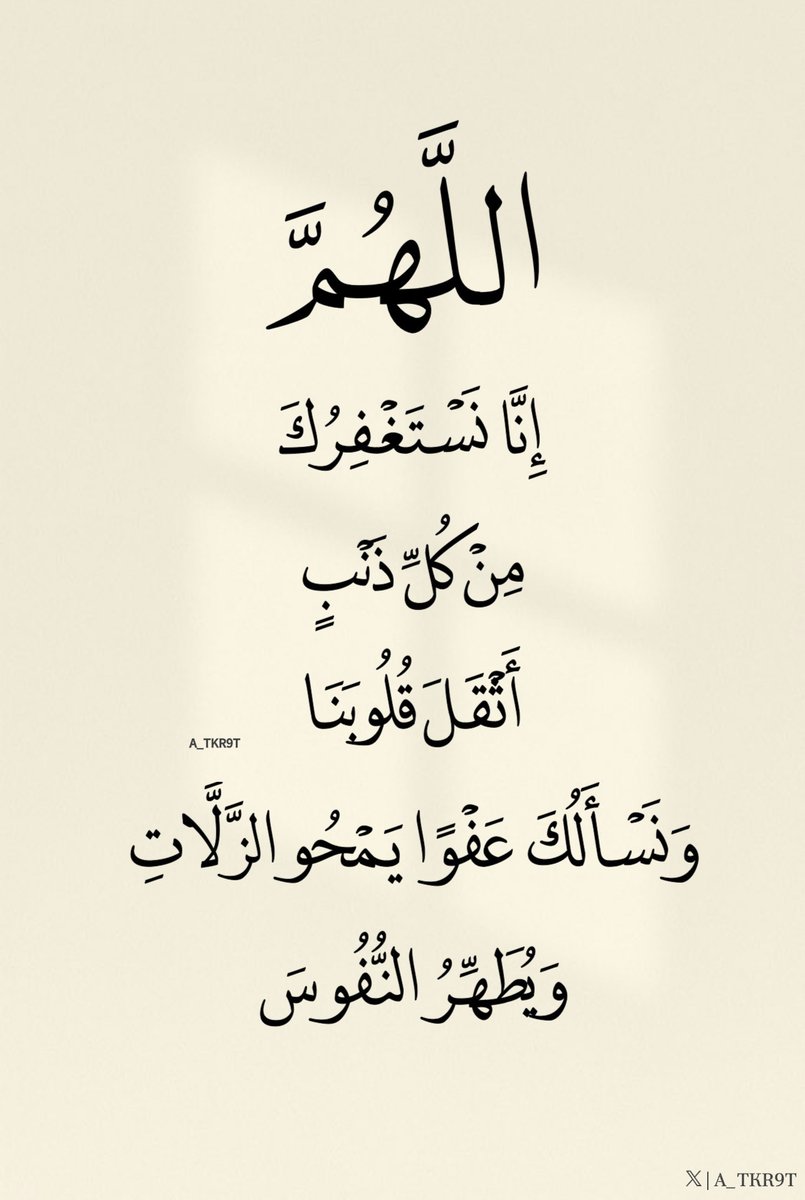 اللَّهُمَّ
إِنَّا نَسْتَغْفِرُكَ
مِنْ كُلِّ ذَنْبٍ
أَثْقَلَ قُلُوبَنَا
A_TKR9T
وَنَسْأَلُكَ عَفْوًا يَمْحُو الزَّلَّاتِ
وَيُطَهِّرُ النُّفُوسَ
𝕏 | A_TKR9T